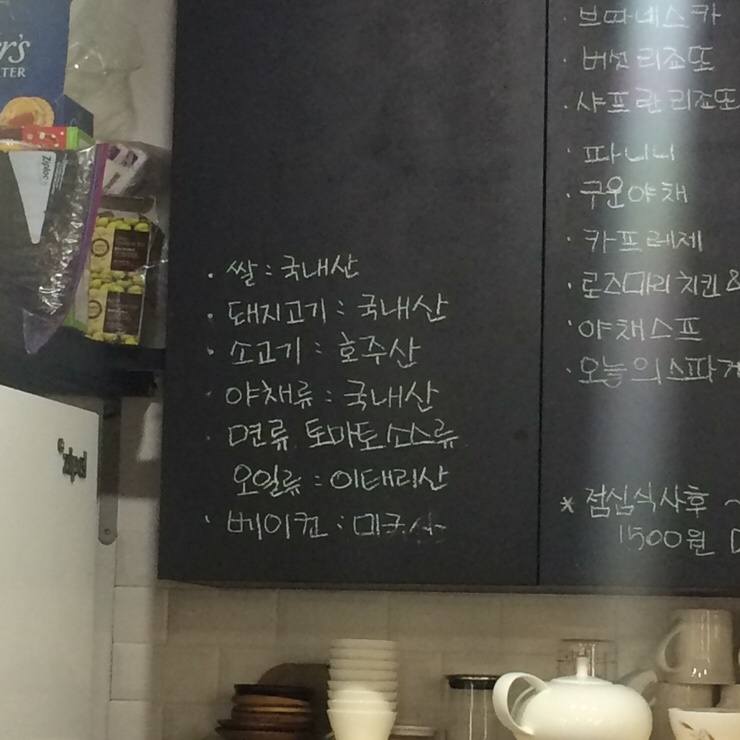 r's
TER
Ziploc
zipel
· 쌀 : 국내산
· 돼지고기 : 국내산
· 소고기 : 호주산
· 야채류 : 국내산
· 면류 토마토소스류
오일류 : 이태리산
· 베이컨 : 미국산
· 브따네스카
· 버섯리죠또
· 샤프란리죠또
· 파니니
· 구운야채
· 카프레제
· 로즈마리치킨&
· 야채스프
· 오늘의스파게
* 점심식사후 ~
1500원